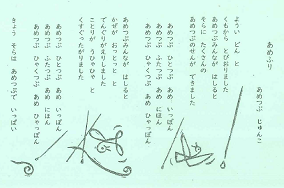 あめふり
あめつぶ じゅんこ
よーい どん
くもから とびおりました
あめつぶみんなが はしると
そらに たくさんの
あめつぶのせんが できました
あめつぶ ひとつぶ あめ いっぽん
あめつぶ ふたつぶ あめ にほん
あめつぶ ひゃくつぶ あめ ひゃっぽん
あめつぶみんなが はしると
かぜが おっとっと と
でんぐりがえりしました
ことりが うひゃひゃ と
くすぐったがりました
あめつぶ ひとつぶ あめ いっぽん
あめつぶ ふたつぶ あめ にほん
あめつぶ ひゃくつぶ あめ ひゃっぽん
きょう そらは あめつぶで いっぱい